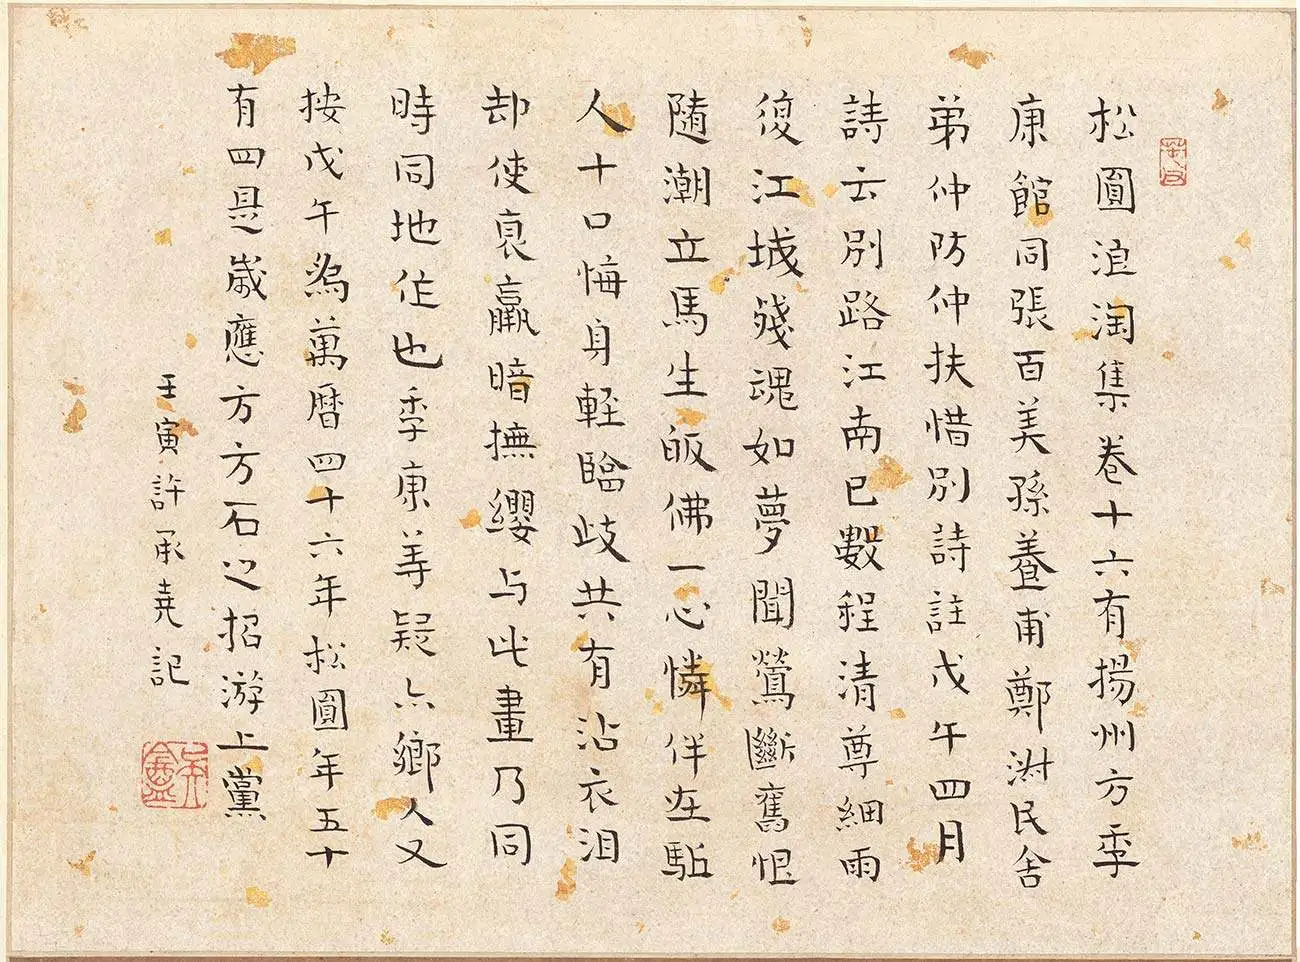 松圓浪淘集卷十六有揚州方季
康館同張百美孫養甫鄭澍民舍
弟仲防仲扶惜別詩註戊午四月
詩云別路江南已數程清尊細雨
復江城殘魂如夢聞鶯斷舊恨
隨潮立馬生皈佛一心憐伴在駈
人十口悔身輕臨歧共有沾衣泪
却使哀羸暗撫纓与此畫乃同
時同地作也季康等疑亦鄉人又
按戊午為萬曆四十六年松圓年五十
有四是歲應方方石之招游上黨
壬寅許承堯記